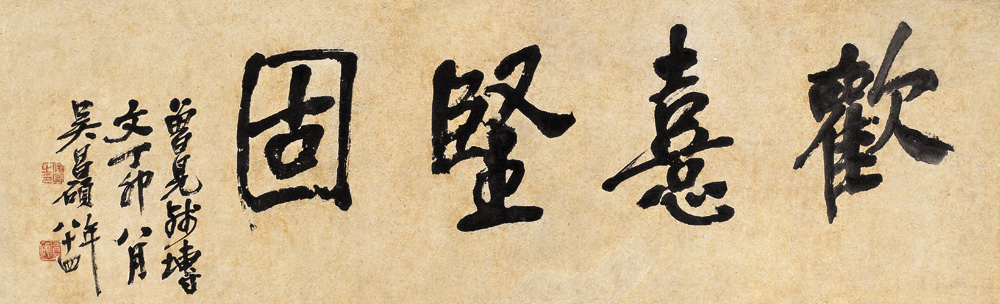 歡憙堅固
曾見塼
文丁卯八月
吳昌碩年八十四